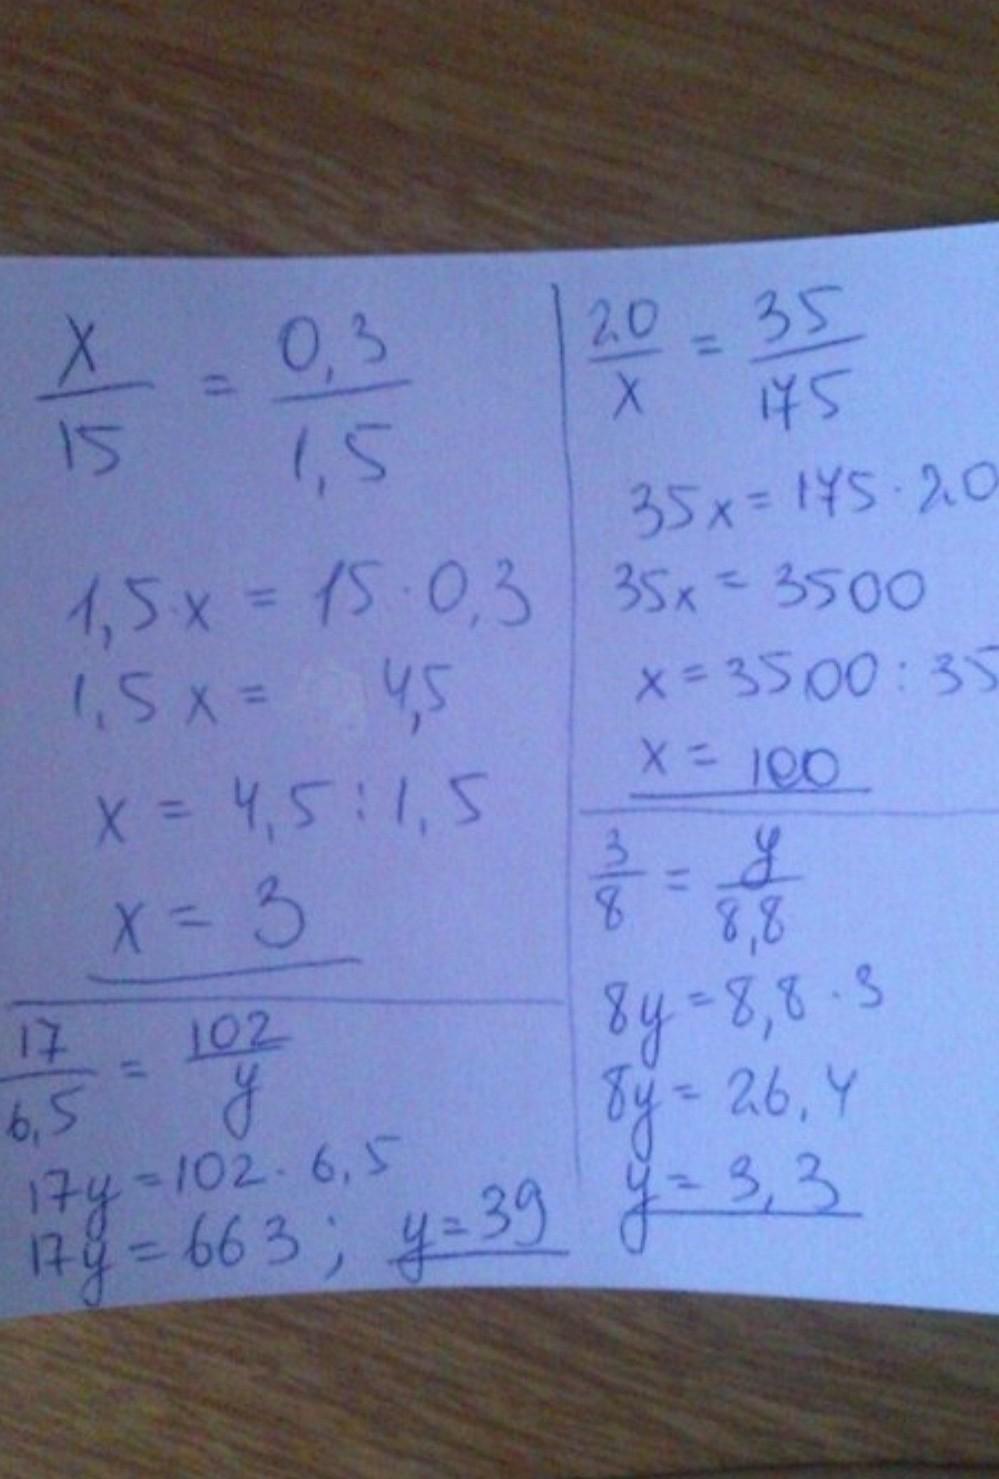 x/15 = 0,3/1,5
1,5·x = 15·0,3
1,5x = 4,5
x = 4,5:1,5
x = 3
20/x = 35/175
35x = 175·20
35x = 3500
x = 3500:35
x = 100
17/6,5 = 102/y
17y = 102·6,5
17y = 663; y = 39
3/8 = y/8,8
8y = 8,8·3
8y = 26,4
y = 3,3